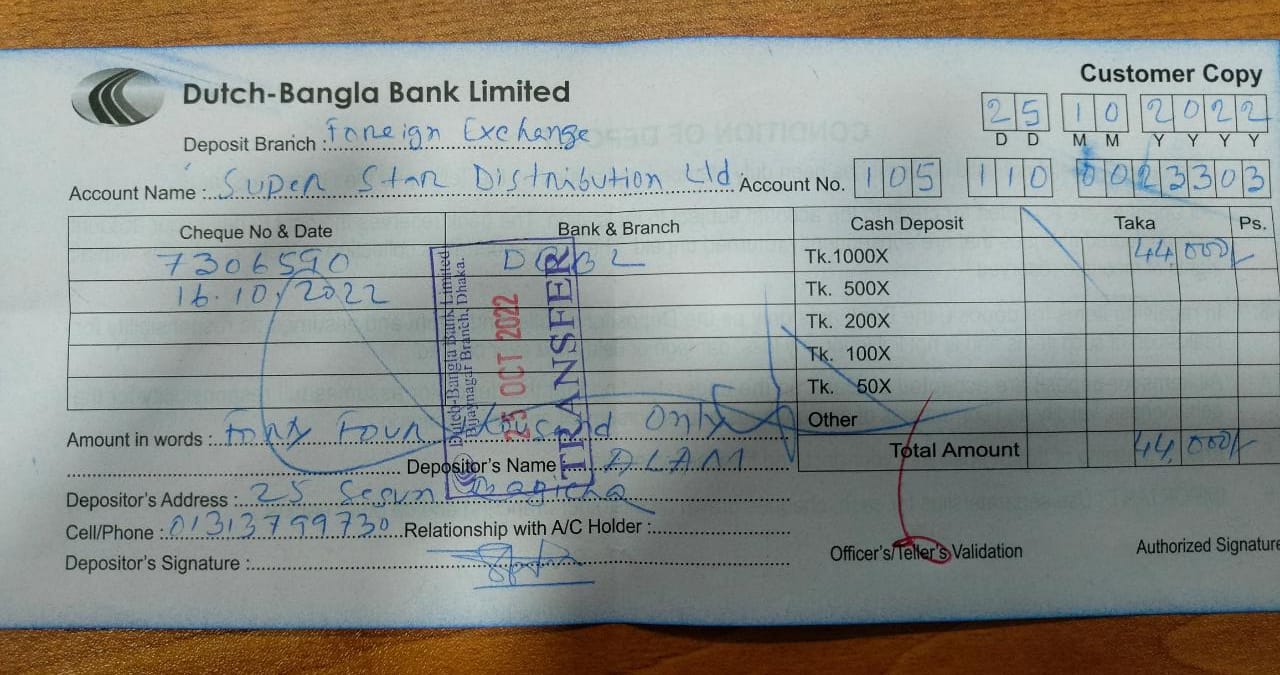 Customer Copy
Dutch-Bangla Bank Limited
25 10 2022
D D M M Y Y Y Y
Deposit Branch : Foreign Exchange
Account Name : Super Star Distribution Ltd Account No. 105 110 0023303
Cheque No & Date Bank & Branch Cash Deposit Taka Ps.
7306590 DBBL Tk.1000X 44,000/-
16.10/2022 Tk. 500X
Tk. 200X
Tk. 100X
Tk. 50X
Other
Dutch-Bangla Bank Limited
Bijaynagar Branch, Dhaka.
25 OCT 2022
TRANSFER
Amount in words : Forty Four thousand Only
Total Amount 44,000/-
Depositor's Name ALAM
Depositor's Address : 25 Segun Bagicha
Cell/Phone : 01313799730 Relationship with A/C Holder :
Depositor's Signature :
Officer's/Teller's Validation Authorized Signature